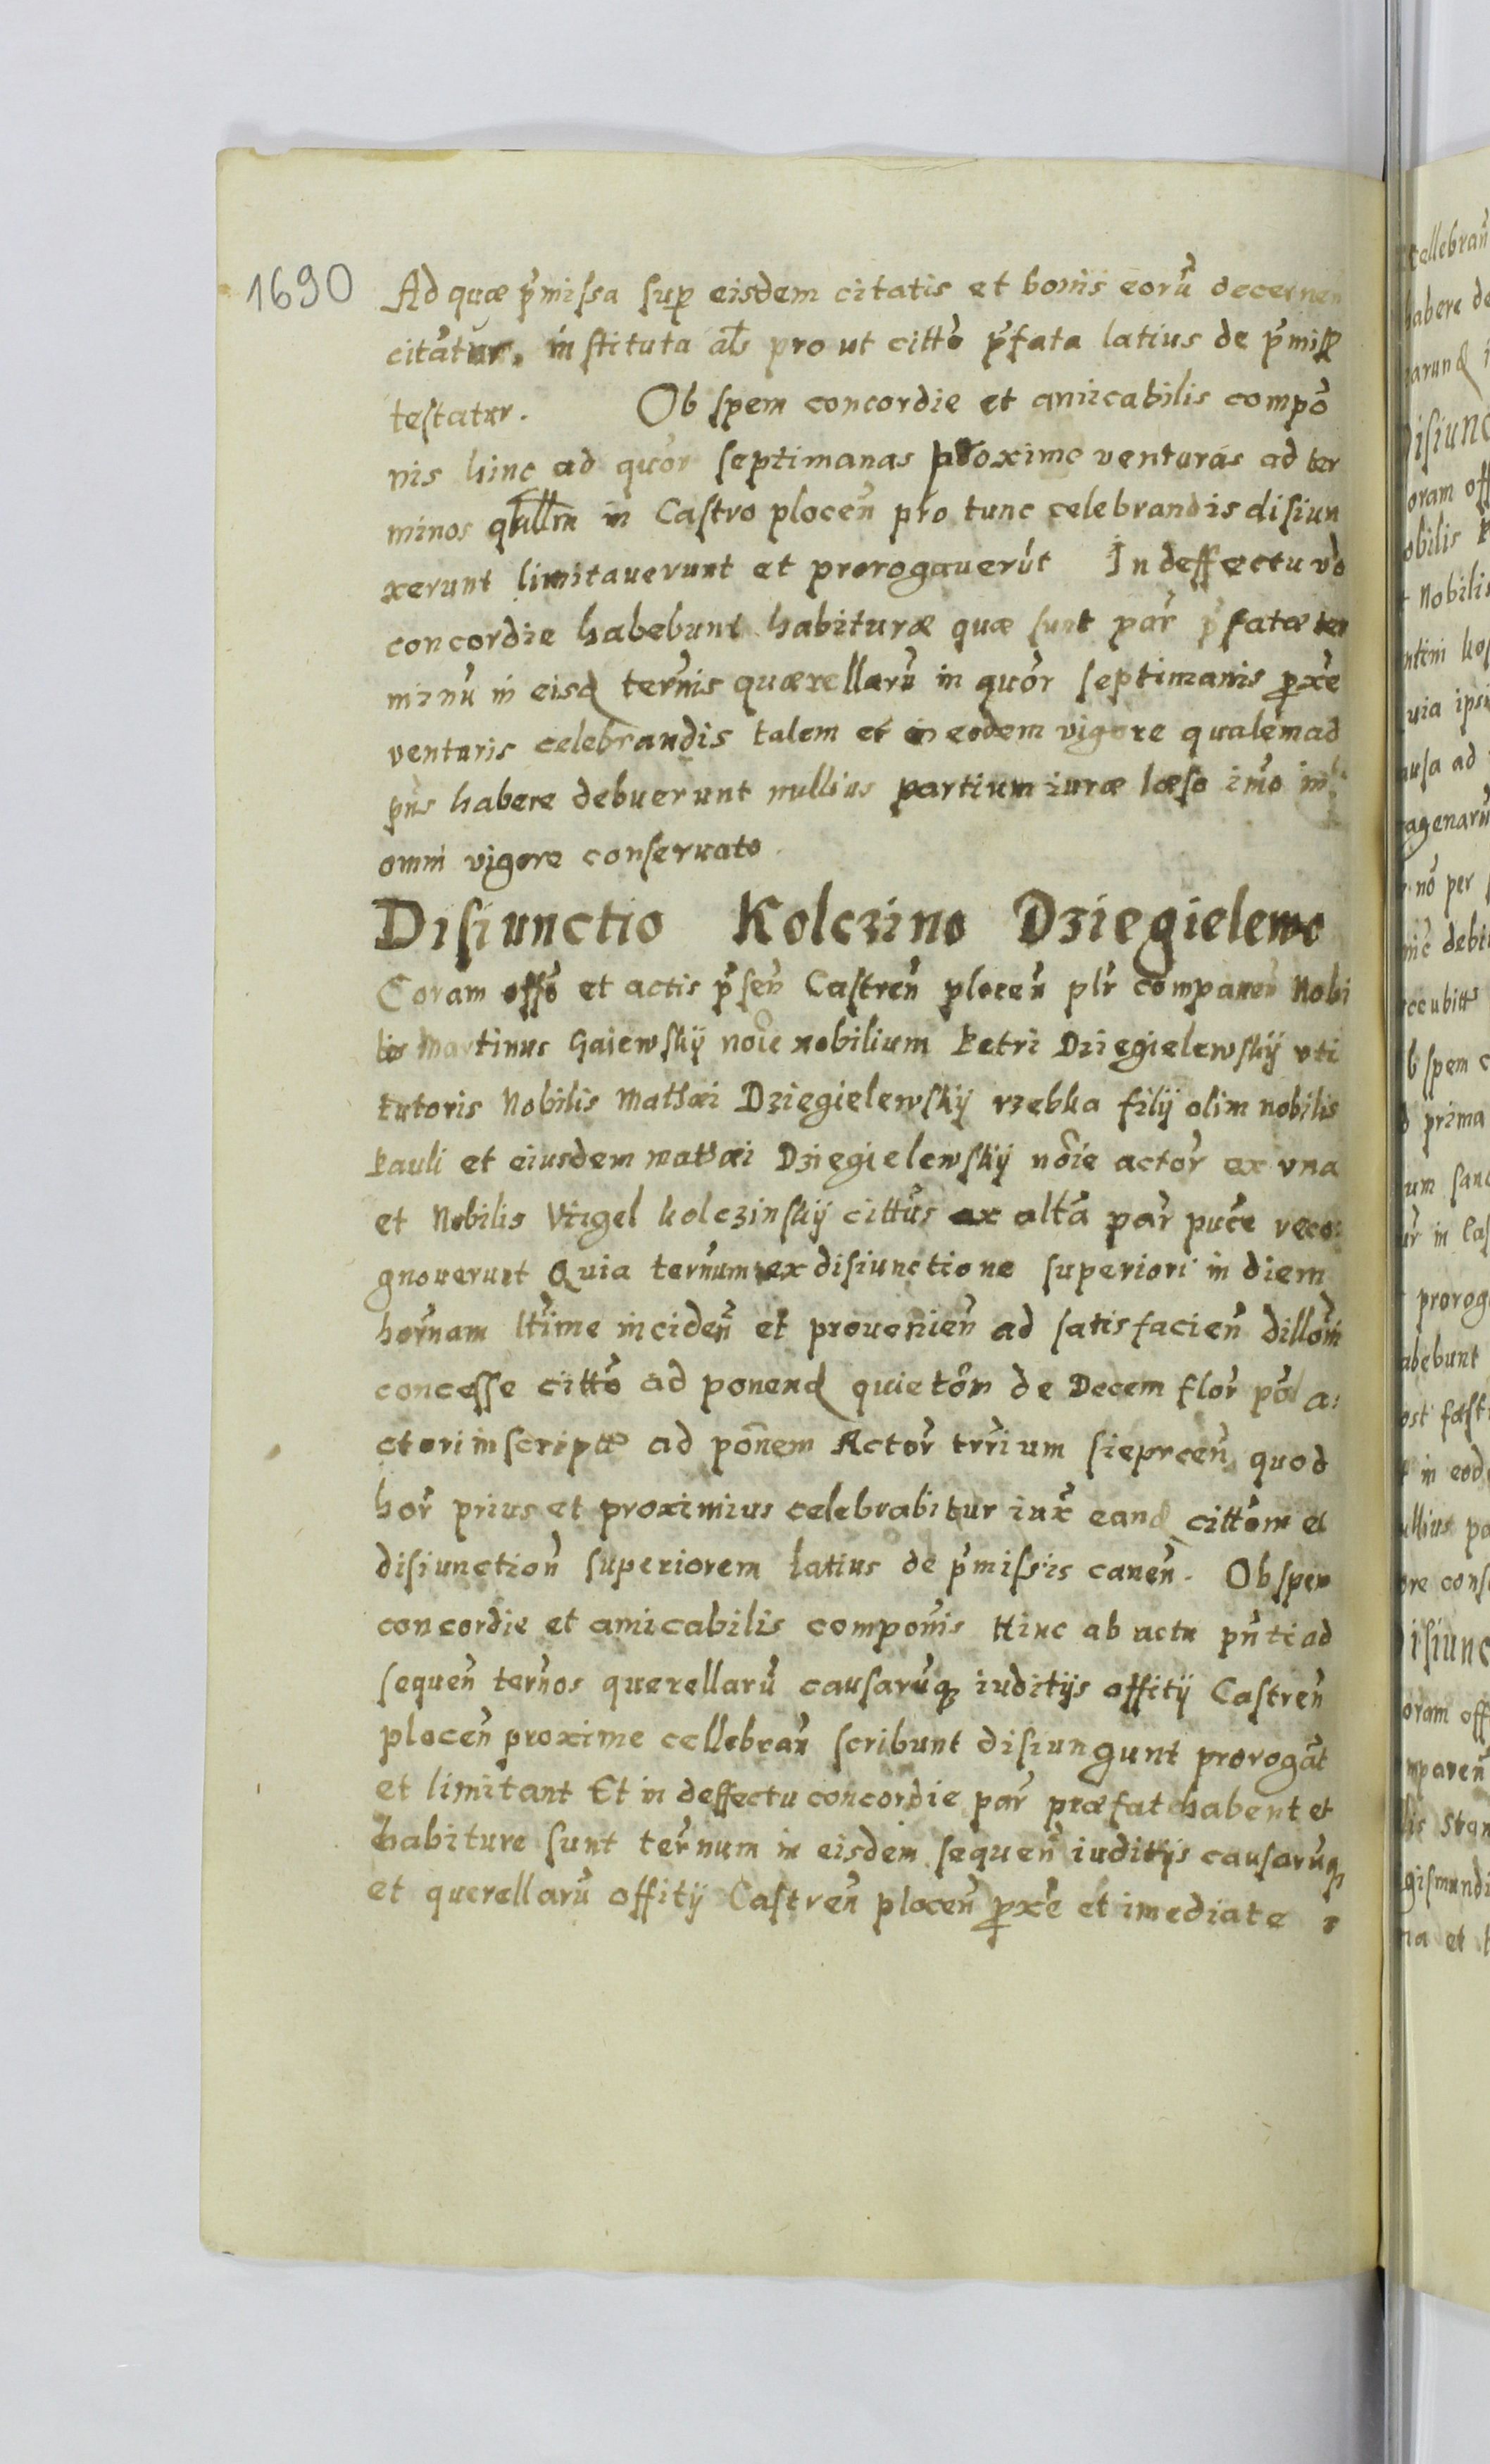 1690
Ad quæ p̃missa sup eisdem citatis et bonis eorũ decernen
citãtur. instituta als pro ut citto p̃fata latius de p̃miss
testatur. Ob spem concordie et amicabilis compõ
nis hinc ad quõr septimanas proxime venturas ad ter
minos qrllrm in Castro plocen̄ pro tunc celebrandis disiun
xerunt limitauerunt et prorogauerũt In deffectu vo
concordie habebunt habituræ quæ sunt par̃ p̃fatæ ter
minũ in eisd ter̃nis quærellarũ in quõr septimanis pxẽ
venturis celebrandis talem et in eodem vigore qualem ad
pñs habere debuerunt nullius partium iuræ læso imo in
omni vigore conseruato.
Disiunctio Kolczino Dziegielewo
Coram offõ et actis p̃sen̄ Castren̄ plocen̄ plr̃ comparen̄ Nobi
lis Martinus Gaiewskÿ noĩe nobilium Petri Dziegielewskÿ vti
tutoris Nobilis Mathæi Dziegielewskÿ rzebka filÿ olim nobilis
Pauli et eiusdem mathæi Dziegielewskÿ nõie actor̃ ex vna
et Nobilis Virgel Kolczinskÿ cittus ex altã par̃ puce reco:
gnouerunt Quia ter̃num ex disiunctione superiori in diem
hor̃nam ltĩme inciden̄ et prouenien̄ ad satisfacien̄ dillõm
concesse cittõ ad ponend quietõn de Decem flor̃ põl a:
ctori inscriptt ad põnem Actor̃ trr̃ium sieprcen̄ quod
hor̃ prius et proximius celebrabitur iux̃ eand cittõm et
disiunction̄ superiorem latius de p̃missis canen̄. Ob spem
concordie et amicabilis componĩs Hinc ab actu pñti ad
sequen̄ ter̃nos querellarũ causarũq iuditÿs offitÿ Castren̄
plocen̄ proxime cellebran̄ scribunt disiungunt prorogãt
et limitant Et in deffectu concordie par̃ præfat habent et
habiture sunt ter̃num in eisdem sequen̄ iuditÿs causarũq
et querellarũ offitÿ Castren̄ plocen̄ pxẽ et imediate